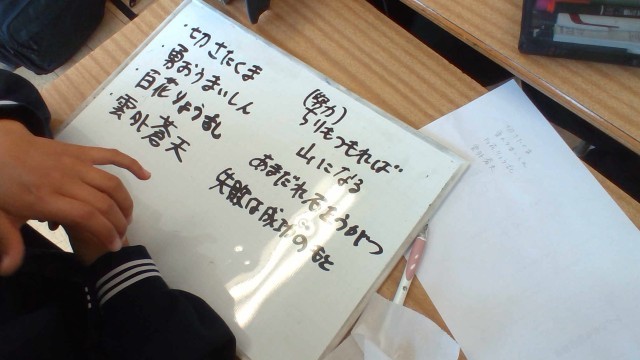 ・切さたくま
・勇おうまいしん
・百花りょうらん
・雲外蒼天
(努力)
ちりもつもれば
山になる
あまだれてをうがつ
失敗は成功のもと